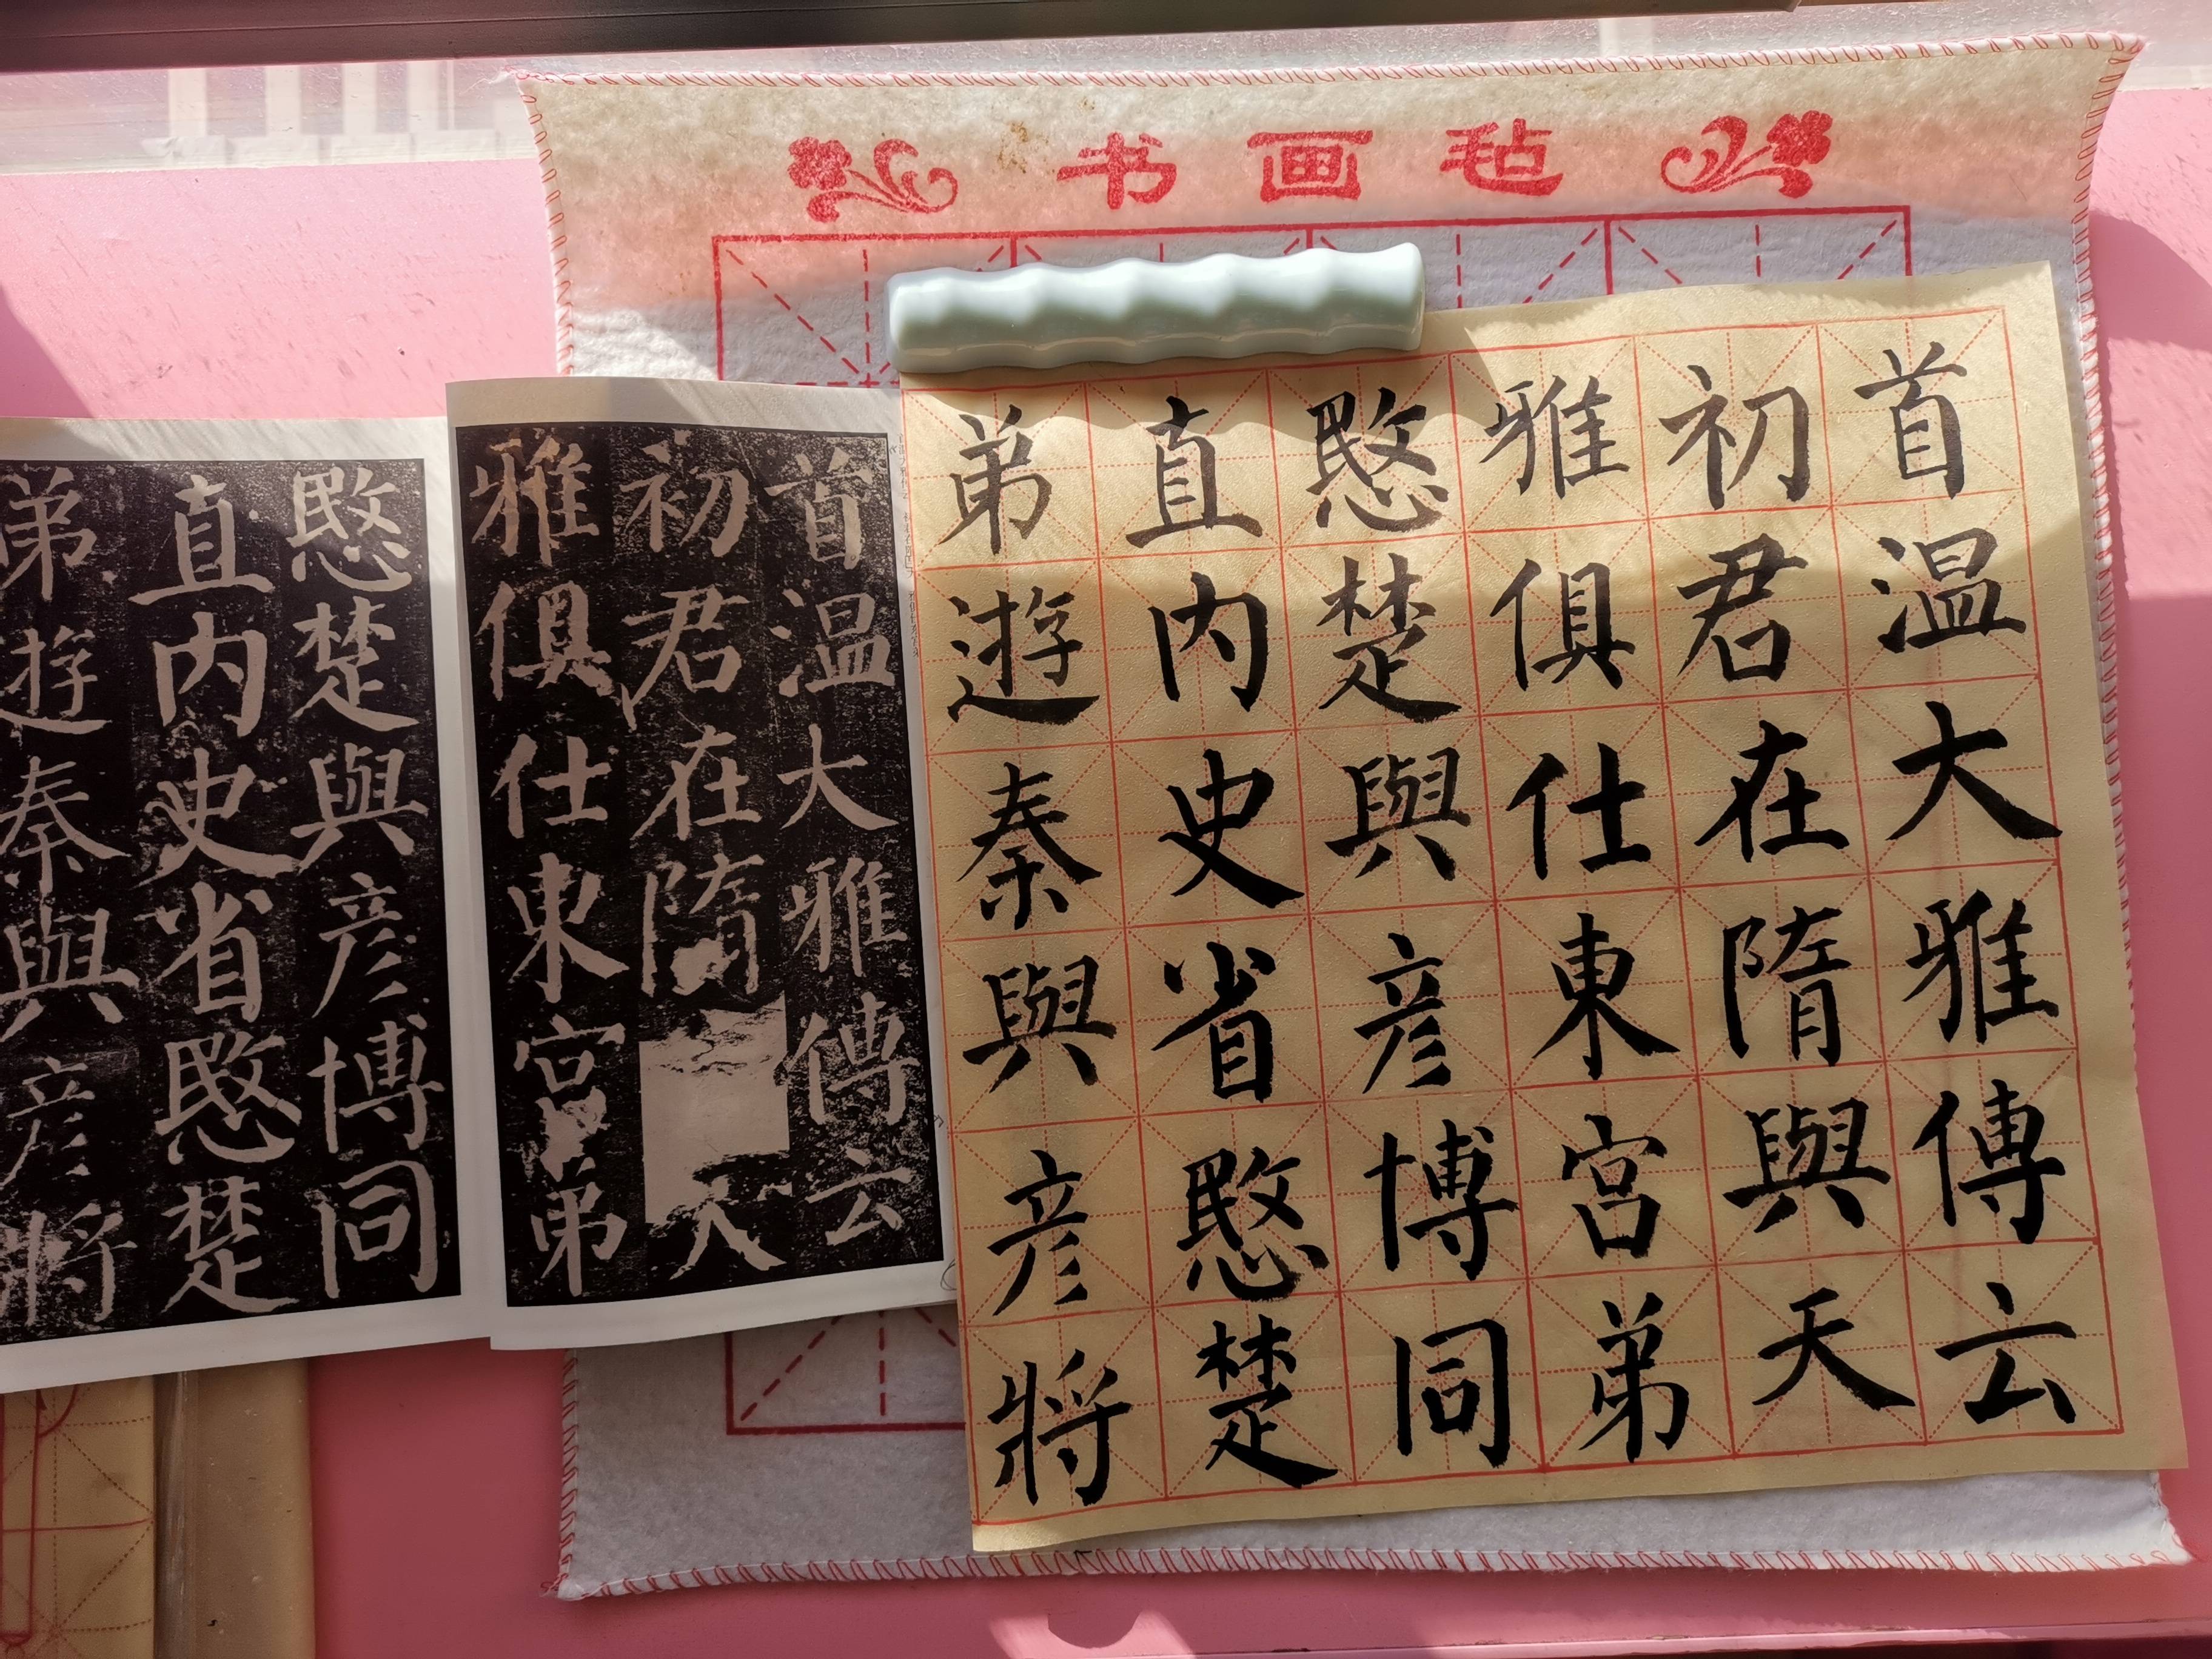 书画毡
首温大雅傳云
初君在隋與天
雅俱仕東宮弟
愍楚與彦博同
直内史省愍楚
弟遊秦與彦將
首温大雅傳云
初君在隋
雅俱仕東宮弟
愍楚與彦博同
直内史省愍楚
弟遊秦與彦將